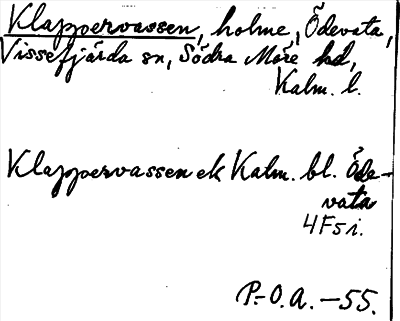 Klappervassen, holme, Ödevata,
Vissefjärda sn, Södra Möre hd,
Kalm. l.
Klappervassen ek Kalm. bl. Öde-
vata
4F5i.
P.-O.A. -55.